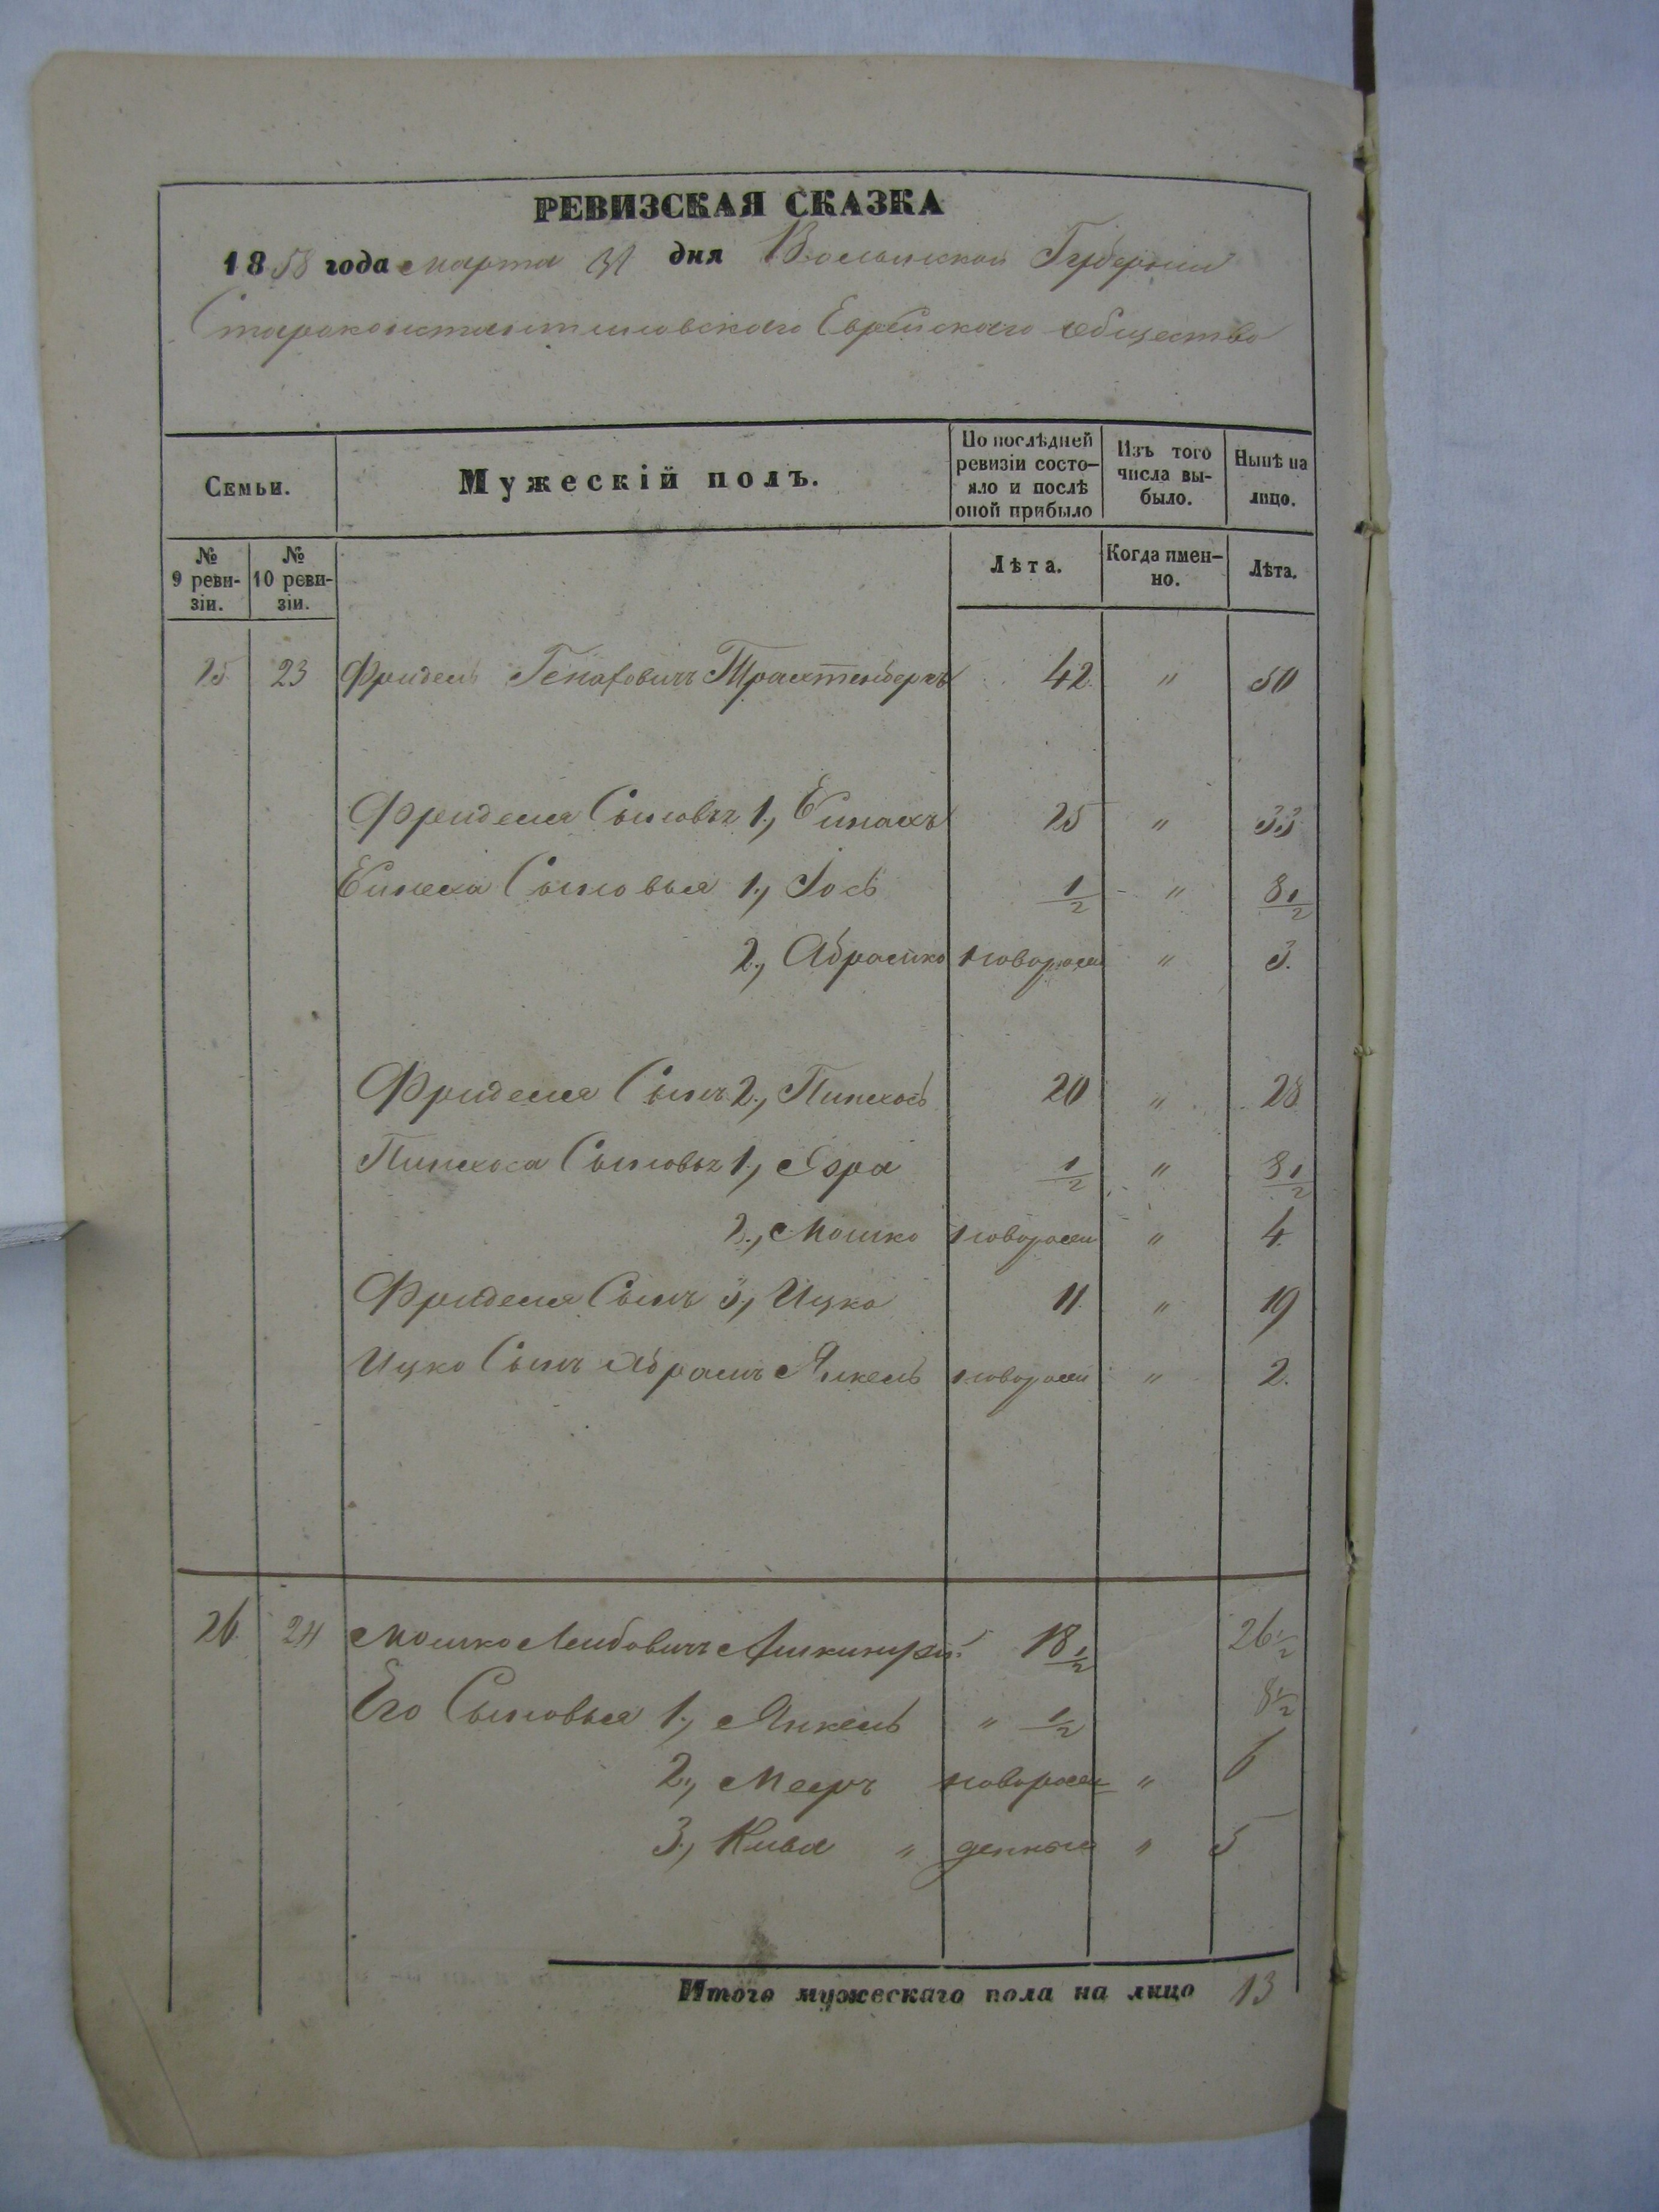 РЕВИЗСКАЯ СКАЗКА
1858 года марта 31 дня Волынской Губернии
Староконстантиновскаго Еврейскаго общества
Семьи. Мужескій полъ. По послѣдней ревизіи состояло и послѣ оной прибыло Изъ того числа выбыло. Нынѣ на лицо.
№ 9 ревизіи. № 10 ревизіи. Лѣта. Когда именно. Лѣта.
25 23 Фридель Трахтенберхъ 42 " 50
Фриделя Сыновья 1., Еинахъ 25 " 33
Еинаха Сыновья 1., Іось 1/2 " 8 1/2
2., Абрамко новорожден " 3.
Фриделя Сынъ 2., Пинхось 20 " 28
Пинхоса Сыновья 1., 1/2 " 8 1/2
2., Мошко новорожден " 4.
Фриделя Сынъ 3., Ицко 11. " 19
Ицко Сынъ Абрамъ Янкель новорожден " 2.
26. 24 Мошко Лейбовичъ 18 1/2 26 1/2
Его Сыновья 1., Янкель " 1/2 8 1/2
2., Мееръ новорож " 6
3., Кива " денные " 5
Итого мужескаго пола на лицо 13